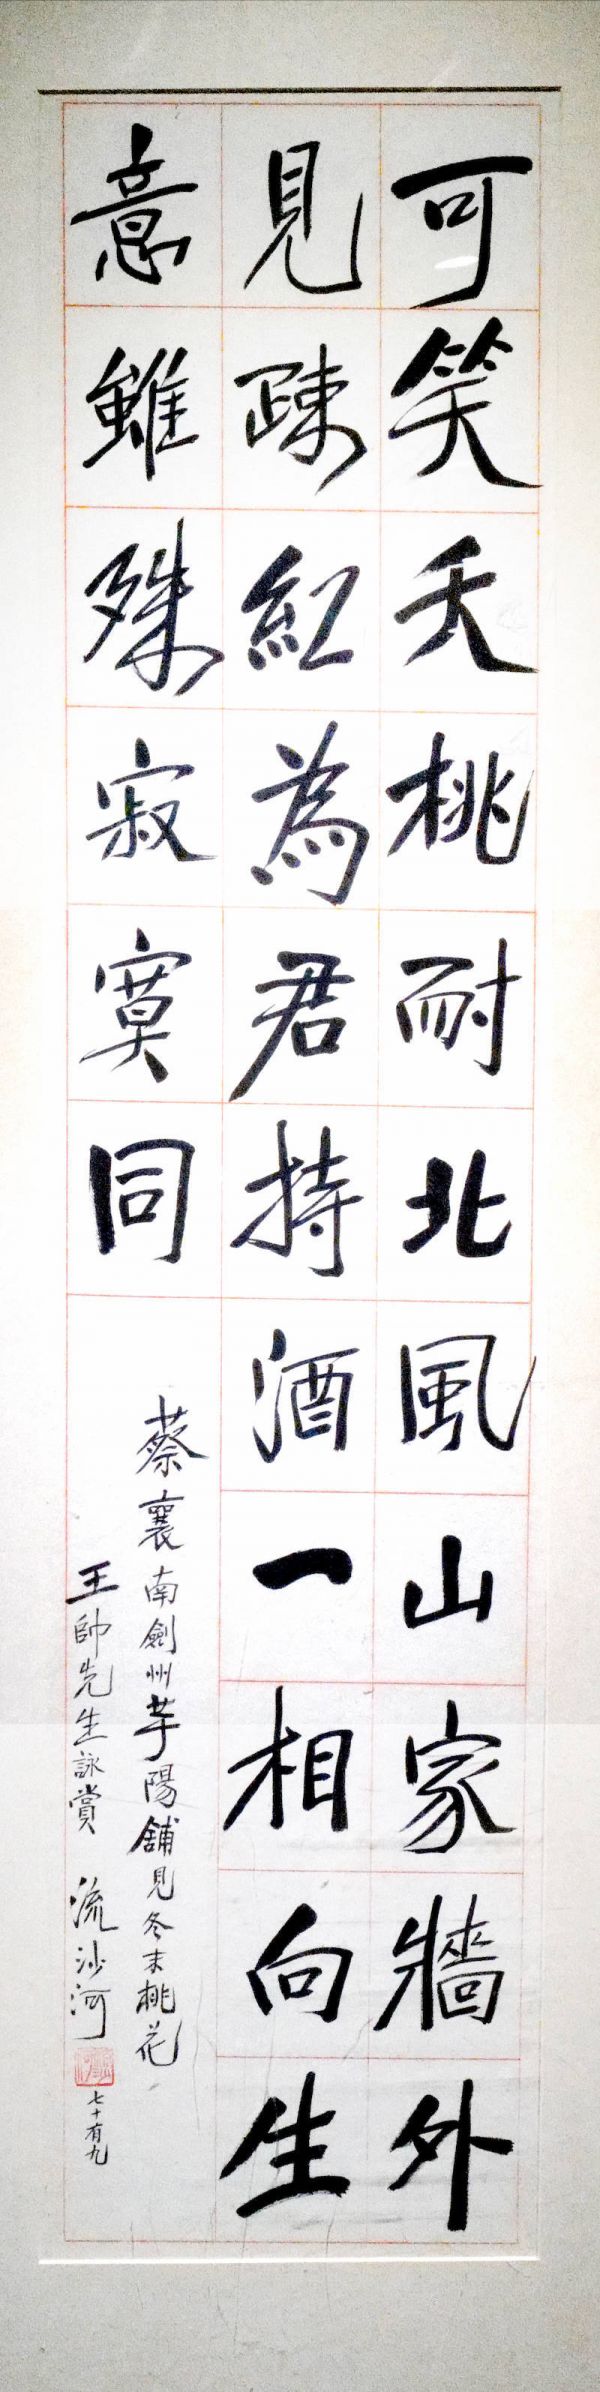 可笑夭桃耐北風山家牆外
見疎紅為君持酒一相向生
意雖殊寂寞同
蔡襄南劍州芋陽舖見冬末桃花
王帥先生詠賞 流沙河
七十有九